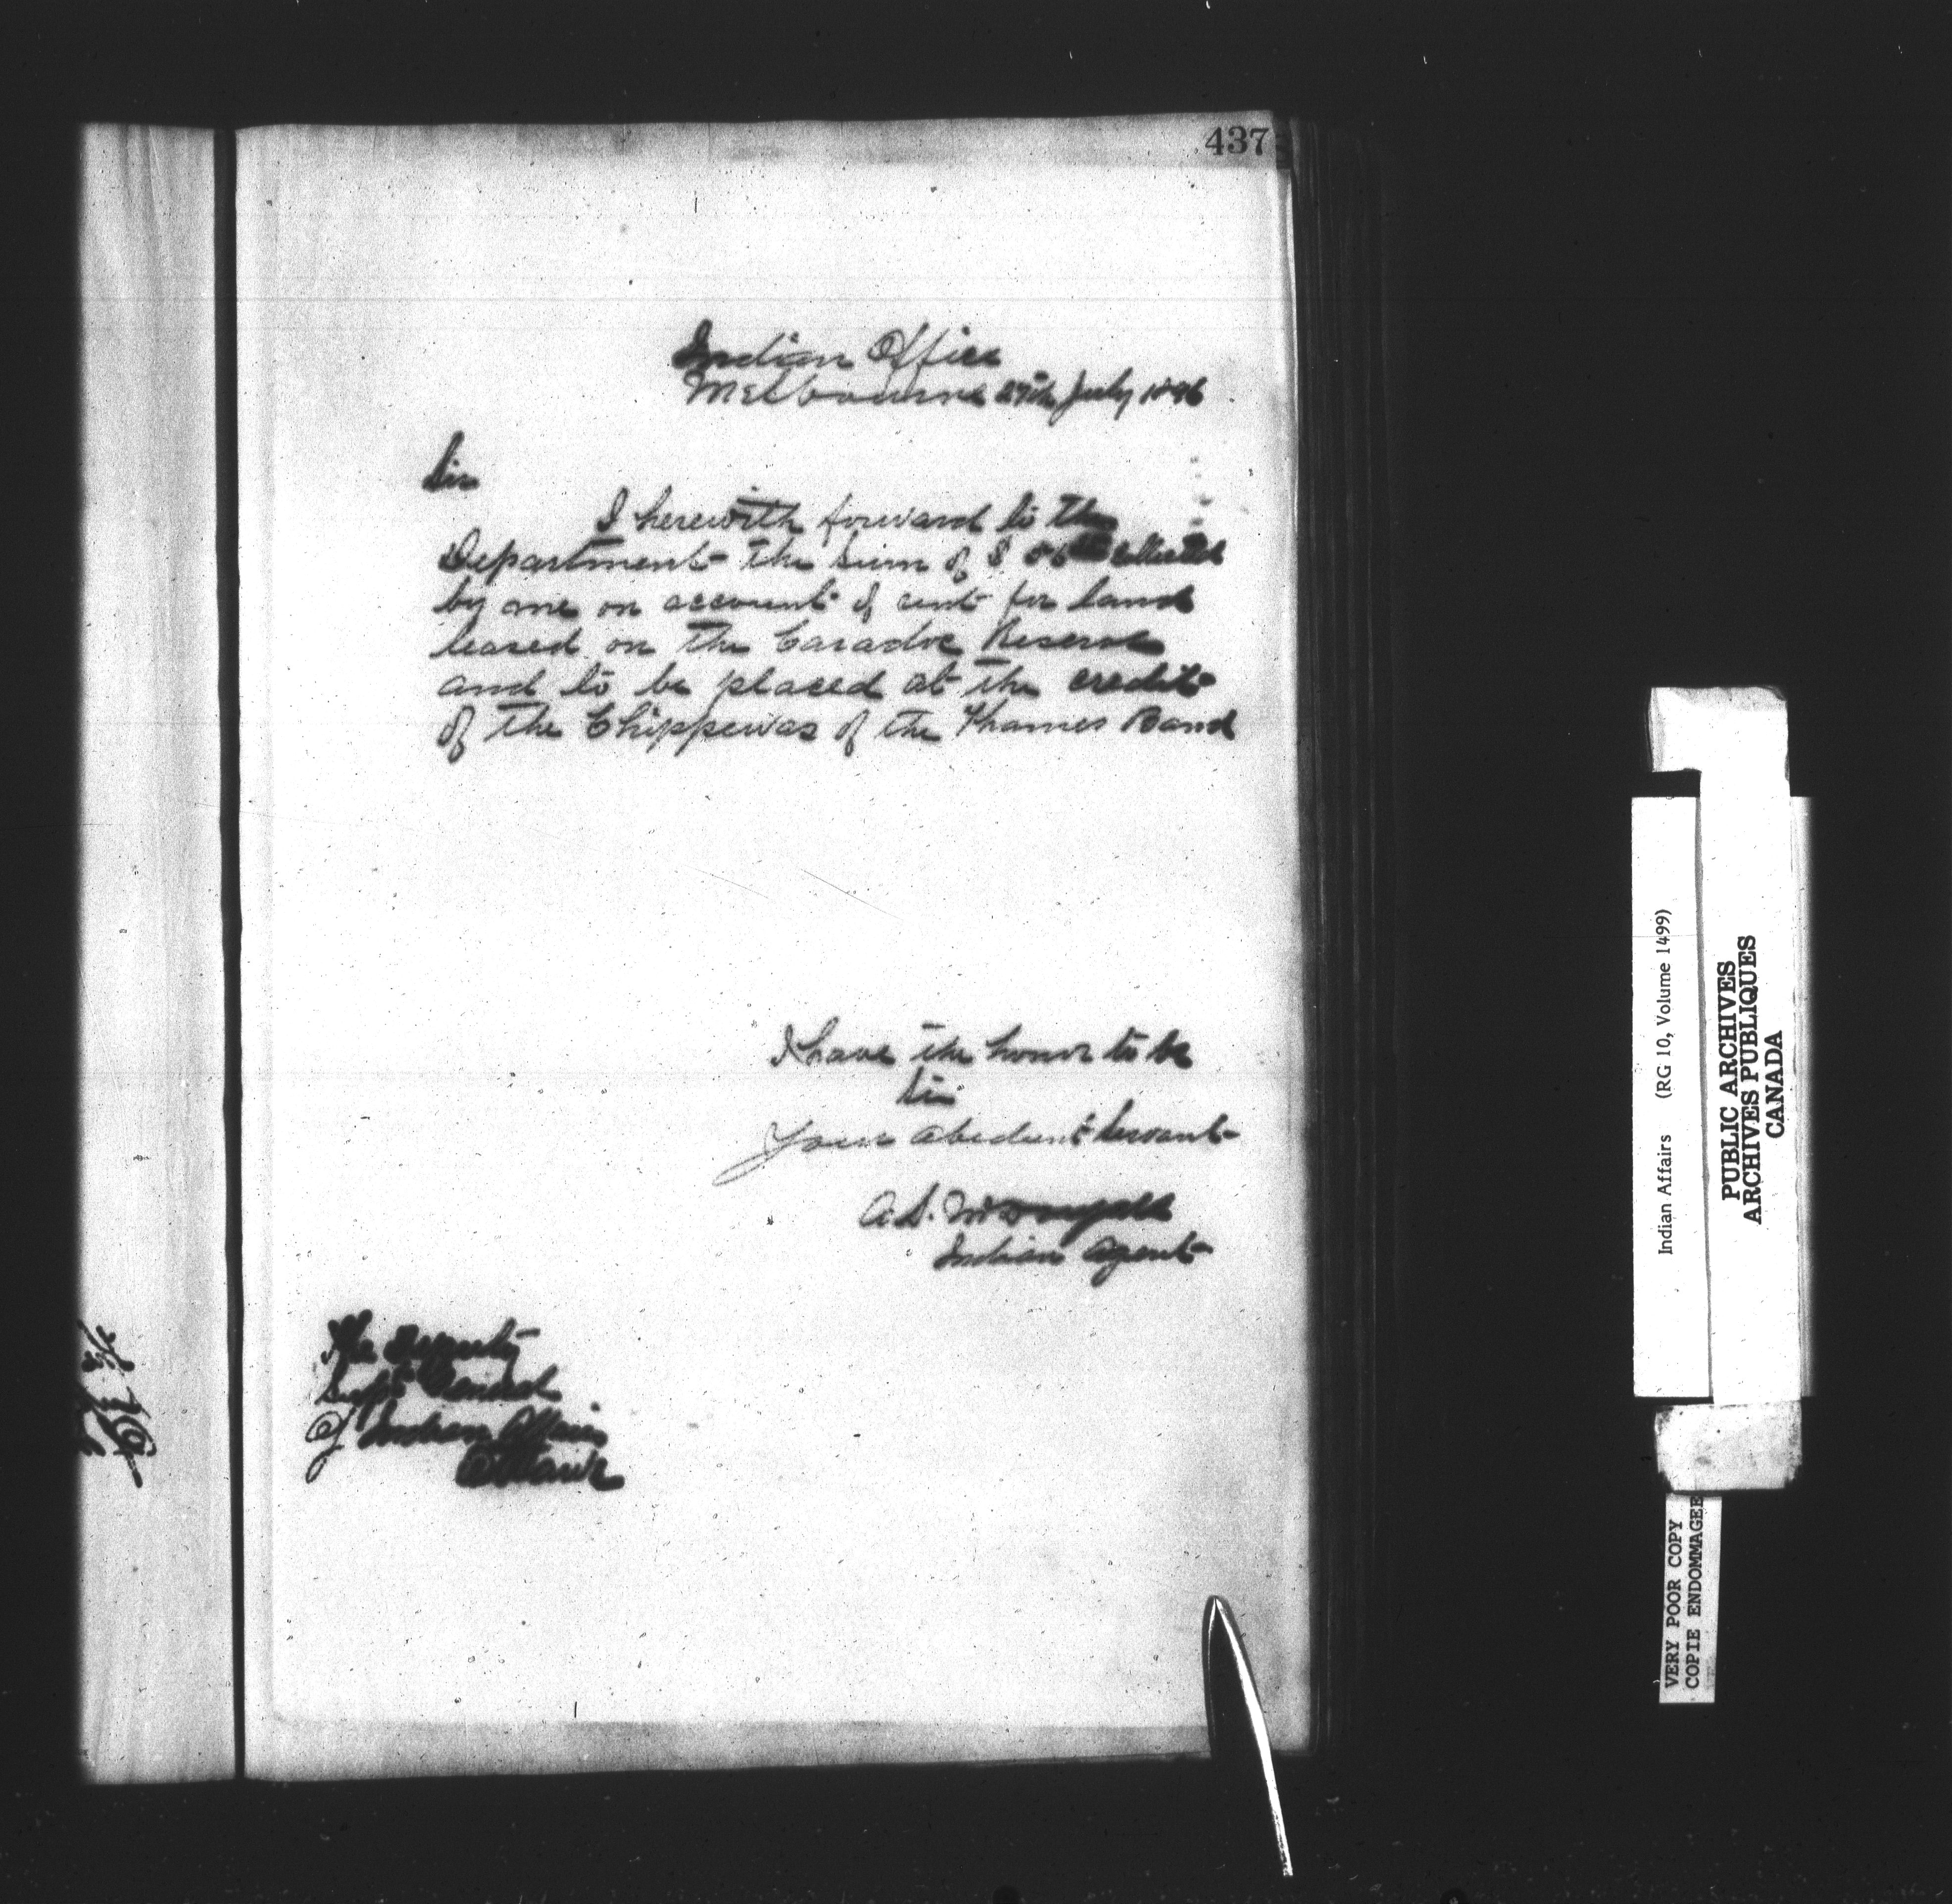 437
Indian Office
Melbourne 27th July 1896
Sir
I herewith forward to the
Department the sum of $ collected
by me on account of rent for land
leased on the Caradoc Reserve
and to be placed at the credit
of the Chippewas of the Thames Band
I have the honor to be
Sir
Your obedient Servant
A.S. McDougall
Indian Agent
The Deputy
Supt General
Of Indian Affairs
Ottawa
Indian Affairs (RG 10, Volume 1499)
PUBLIC ARCHIVES
ARCHIVES PUBLIQUES
CANADA
VERY POOR COPY
COPIE ENDOMMAGEE